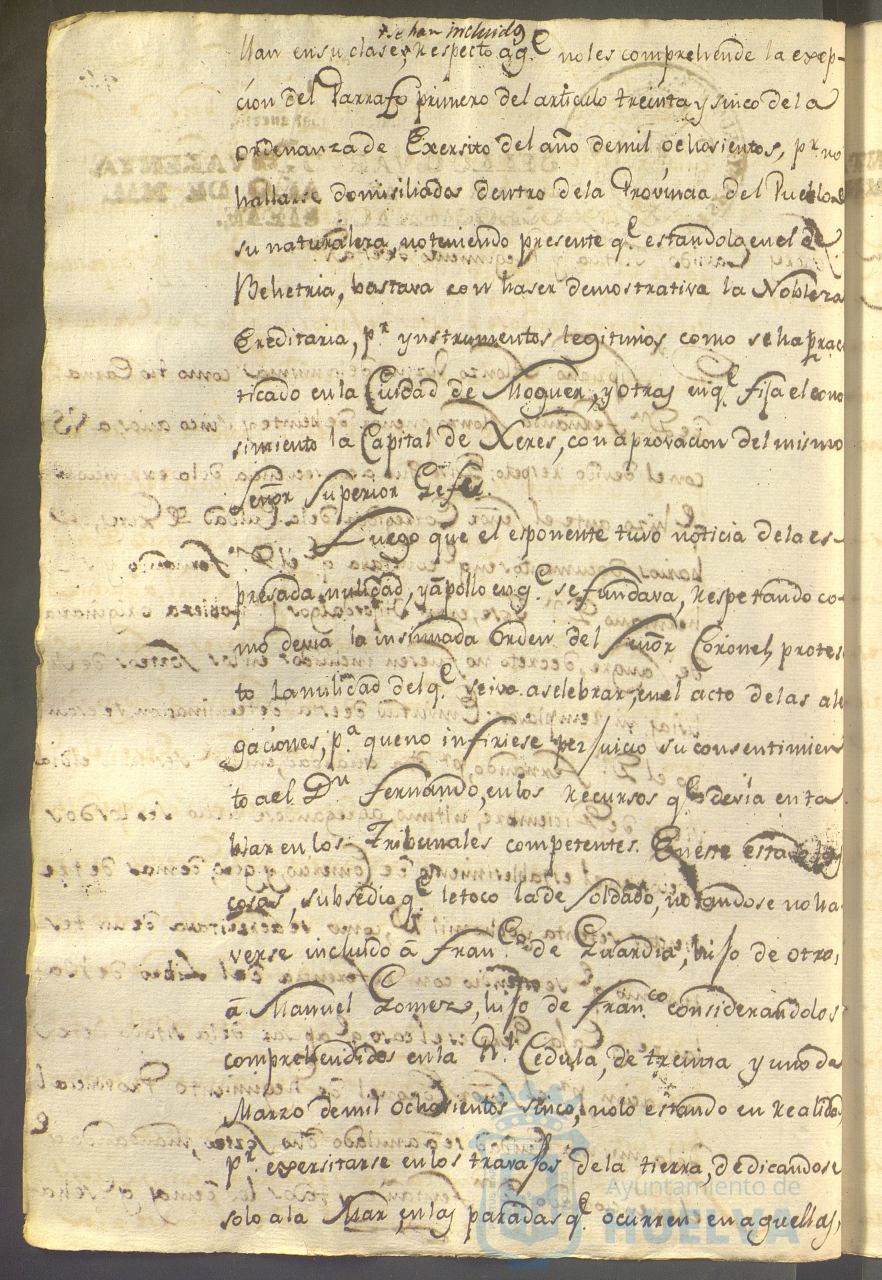 se han incluido
llan en su clase, Respecto a q.e no les comprehende la exep-
cion del Parrafo primero del articulo treinta y sinco de la
ordenanza de Exersito del año de mil ochosientos, p.r no
hallarse domisiliados dentro de la Provincia del Pueblo de
su naturalera, no teniendo presente q.e estandolo en el de
Behetria, bastava con haser demostrativa la Noblera
Ereditaria, p.r ynstrumentos legitimos como se ha prac
ticado en la Ciudad de Moguer, y otras en q.e fija el cono
simiento la Capital de Xeres, con aprovacion del mismo
Señor Superior Gefe.
Luego que el esponente tuvo noticia de la es-
presada nulidad, y apollo en q.e se fundava, Respetando co-
mo devia la insinuada Orden del Señor Coronel, protes
to la nulidad del q.e se iva a selebrar, en el acto de las ale
gaciones, p.a que no infiriese perjuicio su consentimien
to a el D.n Fernando, en los Recursos q.e devia enta
blar en los Tribunales competentes. En este estado las
cosas, subsedio q.e le toco la de Soldado, notandose no ha
verse incluido â Fran.co de Guardia, hijo de otro,
â Manuel Gomez, hijo de Fran.co considerandolos
comprehendidos en la R.l Cedula, de treinta y uno de
Marzo de mil ochosientos sinco, no lo estando en Realidad
p.r exersitarse en los travajos de la tierra, dedicandose
solo a la Mar en las paradas q.e ocurren en aquellas,
Ayuntamiento de
HUELVA